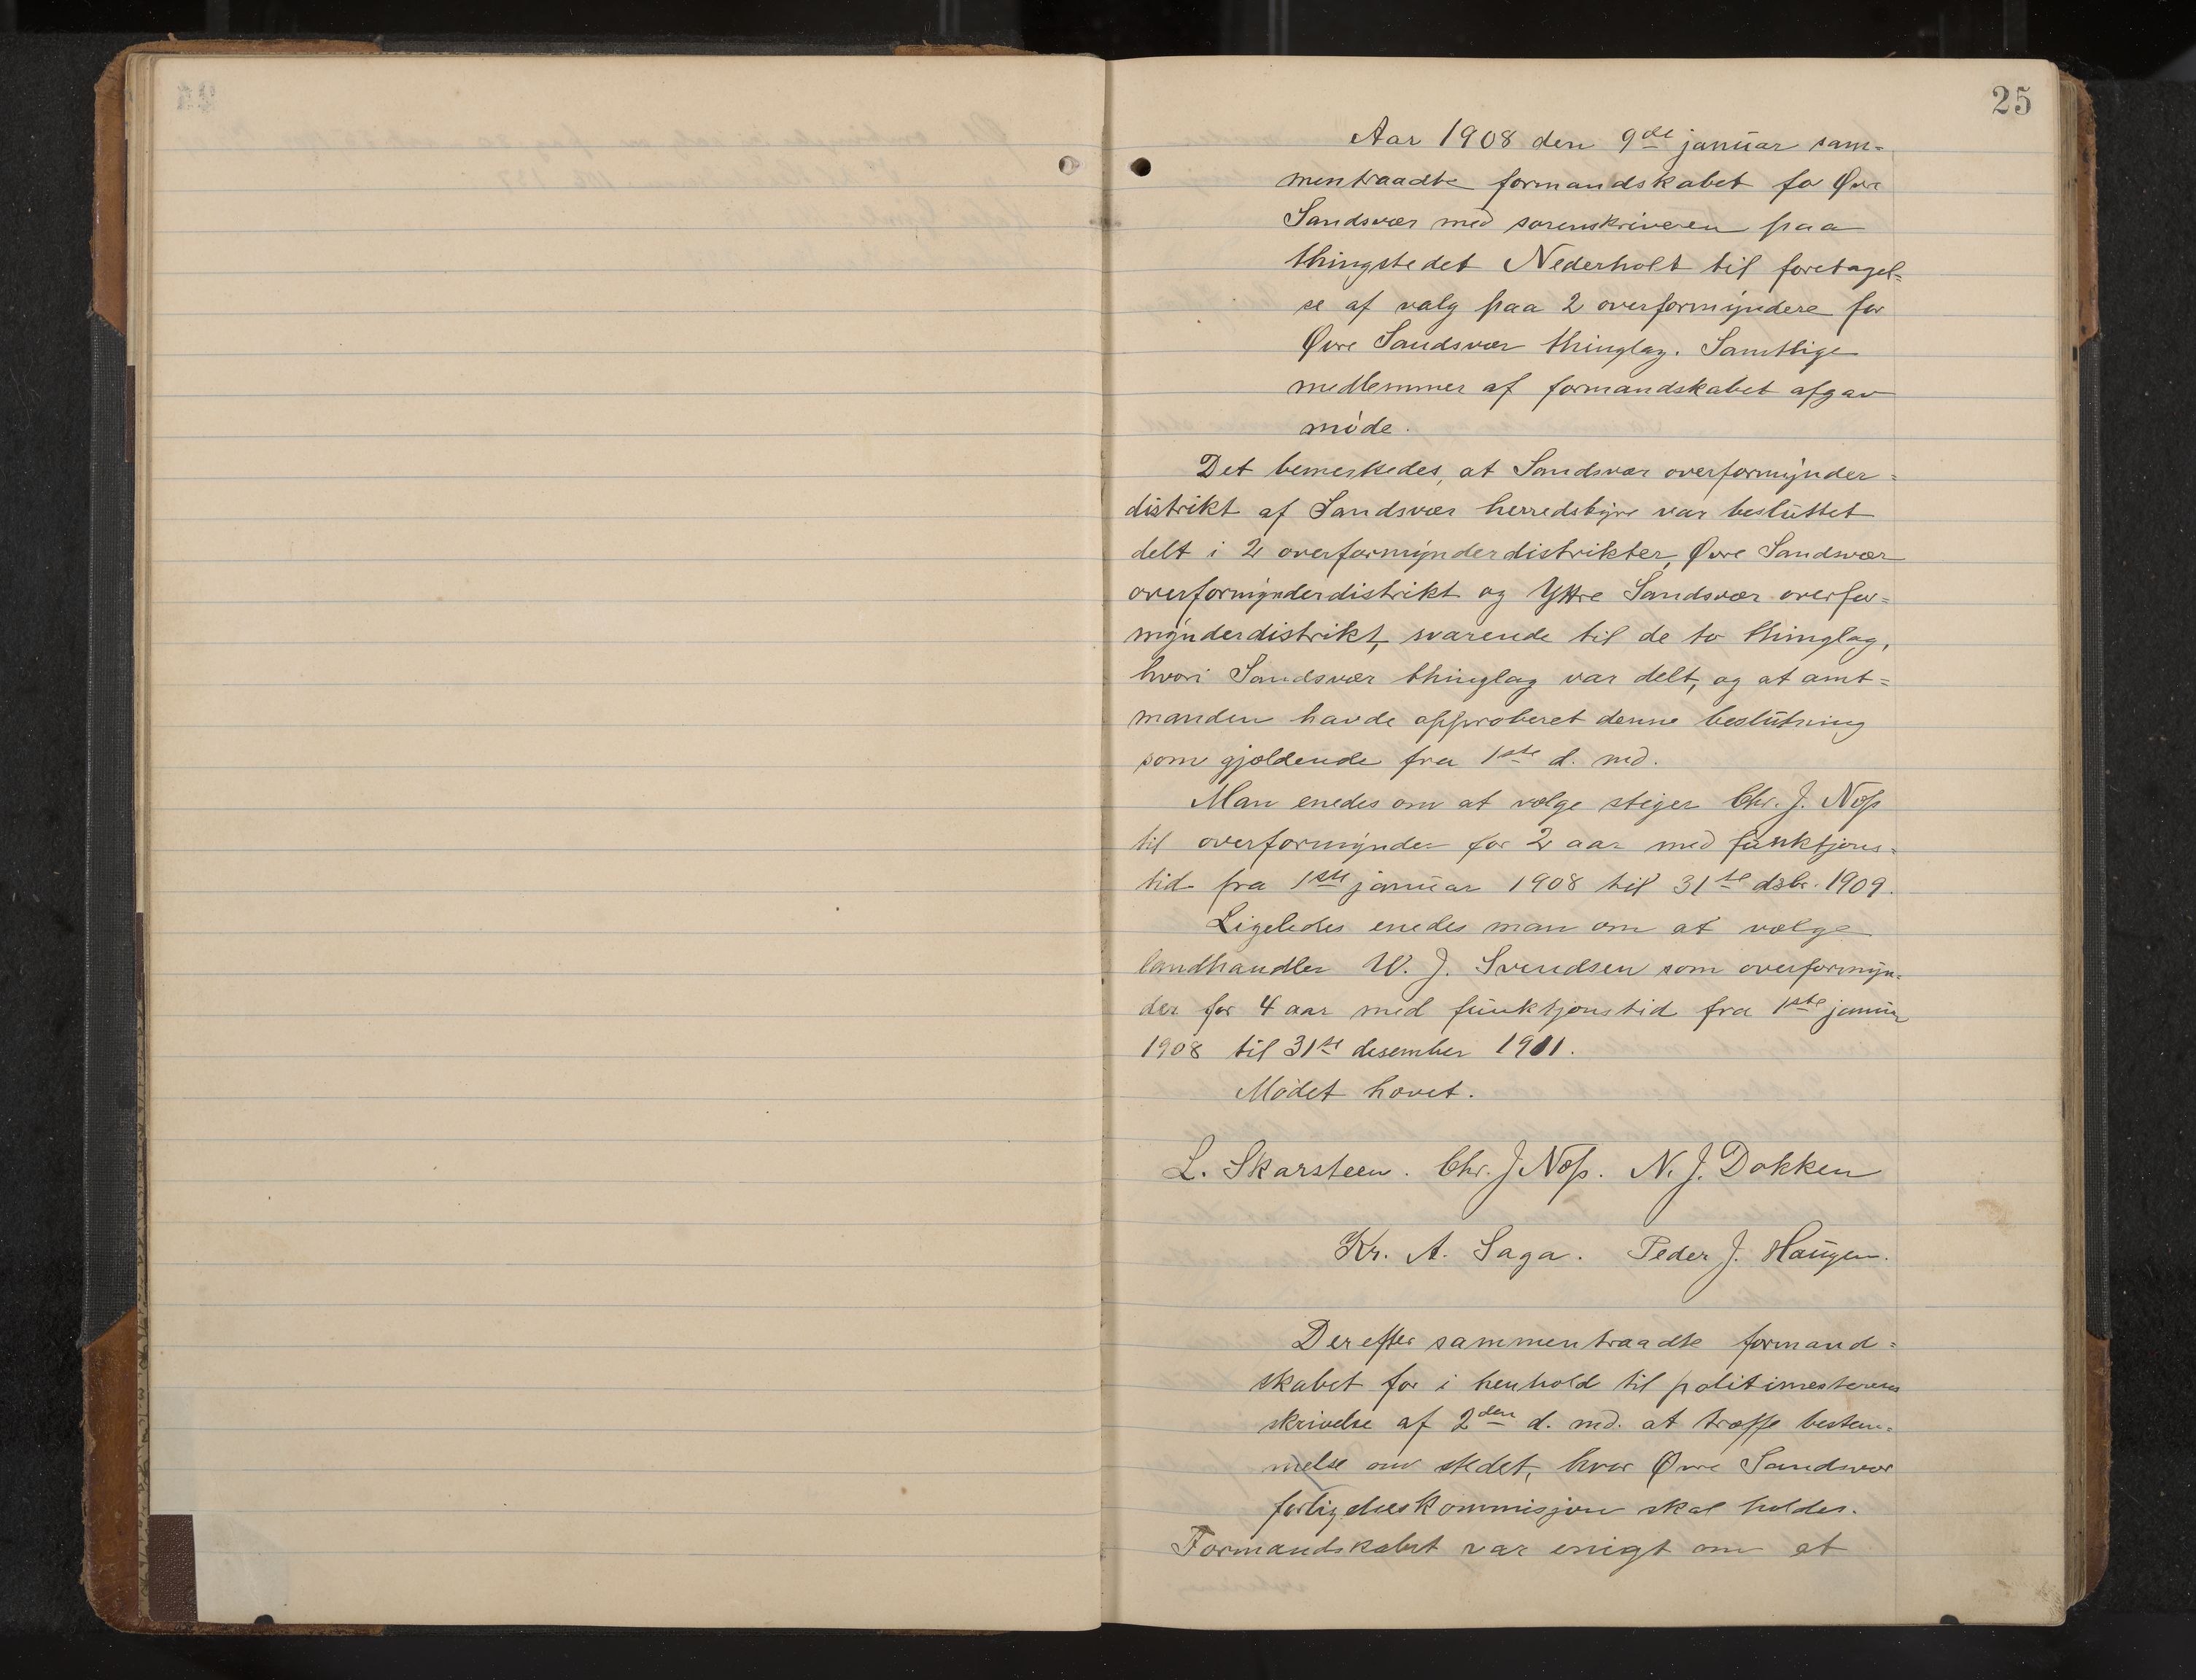 25
Aar 1908 den 9de januar sam-
mentraadte formandskabet for Øvre
Sandsvær med sorenskriveren paa
thingstedet Nederholt til foretagel-
se af valg paa 2 overformyndere for
Øvre Sandsvær thinglag. Samtlige
medlemmer af formandskabet afgav
møde.
Det bemerkedes, at Sandsvær overformynder-
distrikt af Sandsvær herredstyre var besluttet
delt i 2 overformynderdistrikter, Øvre Sandsvær
overformynderdistrikt og Yttre Sandsvær overfor-
mynderdistrikt, svarende til de to thinglag,
hvori Sandsvær thinglag var delt, og at amt-
manden havde approberet denne beslutning
som gjældende fra 1ste d. md.
Man enedes om at vælge stiger Chr. J. Næss
til overformynder for 2 aar med funktjons-
tid fra 1ste januar 1908 til 31te dsbr. 1909.
Ligeledes enedes man om at vælge
landhandler W. J. Svendsen som overformyn-
der for 4 aar med funktjonstid fra 1ste januar
1908 til 31te desember 1911.
Mødet hævet.
L. Skarsteen. Chr. J Næss. N. J. Dokken
Kr. A. Saga. Peder J. Haugen.
Derefter sammentraadte formand-
skabet for i henhold til politimesterens
skrivelse af 2den d. md. at træffe bestem-
melse om stedet, hvor Øvre Sandsvær
forligelseskommisjon skal holdes.
Formandskabet var enigt om at